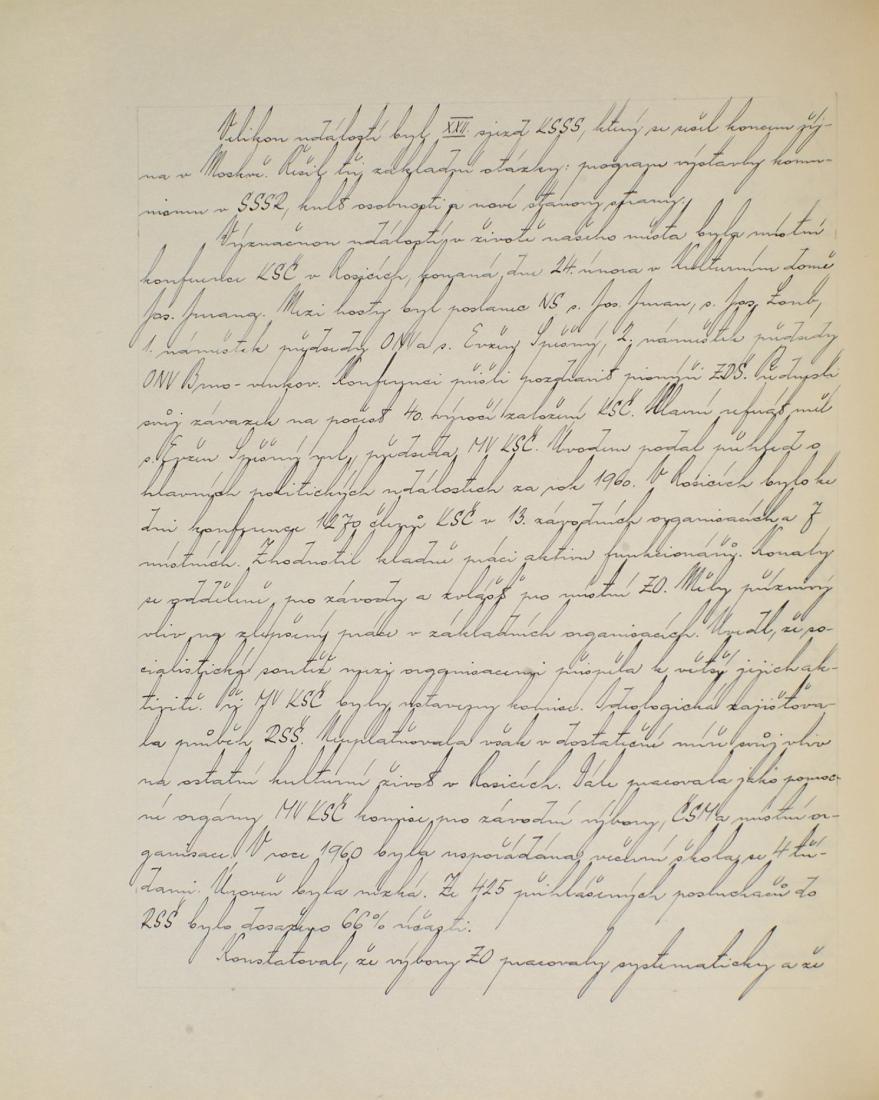 Velikou událostí byl XXII. sjezd KSSS, který se sešel koncem říj-
na v Moskvě. Řešil tři základní otázky: program výstavby komu-
nismu v SSSR, kult osobnosti a nové stanovy strany.
Význačnou událostí v životě našeho města byla místní
konference KSČ v Rosicích, konaná dne 24. února v Kulturním domě
Jos. Jurana. Mezi hosty byl poslanec NS s. Jos. Juran, s. Jos. Zoub,
1. náměstek předsedy ONV a s. Evžen Spěšný, 2. náměstek předsedy
ONV Brno-venkov. Konferenci přišli pozdravit pionýři ZDŠ. Přednesli
svůj závazek na počest 40. výročí založení KSČ. Hlavní referát měl
s. Evžen Spěšný ml., předseda MV KSČ. Úvodem podal přehled o
hlavních politických událostech za rok 1960. V Rosicích bylo ke
dni konference 1270 členů KSČ v 13. závodních organisacích a 7
místních. Zhodnotil kladně práci aktivu funkcionářů. Konaly
se odděleně pro závody a zvlášť pro místní ZO. Měly příznivý
vliv na zlepšený práce v základních organisacích. Uvedl, že so-
cialistická soutěž mezi organisacemi přispěla k větší jejich ak-
tivitě. Při MV KSČ byly ustaveny komise. Ideologická zajišťova-
la průběh RSŠ. Neuplatňovala však v dostatečné míře svůj vliv
na ostatní kulturní život v Rosicích. Dále pracovala jako pomoc-
né orgány MV KSČ komise pro závodní výbory, ČSM a místní or-
ganisace. V roce 1960 byla uspořádána večerní škola se 4 tří-
dami. Úroveň byla nízká. Ze 425 přihlášených posluchačů do
RSŠ bylo dosaženo 66% účasti.
Konstatoval, že výbory ZO pracovaly systematicky a že